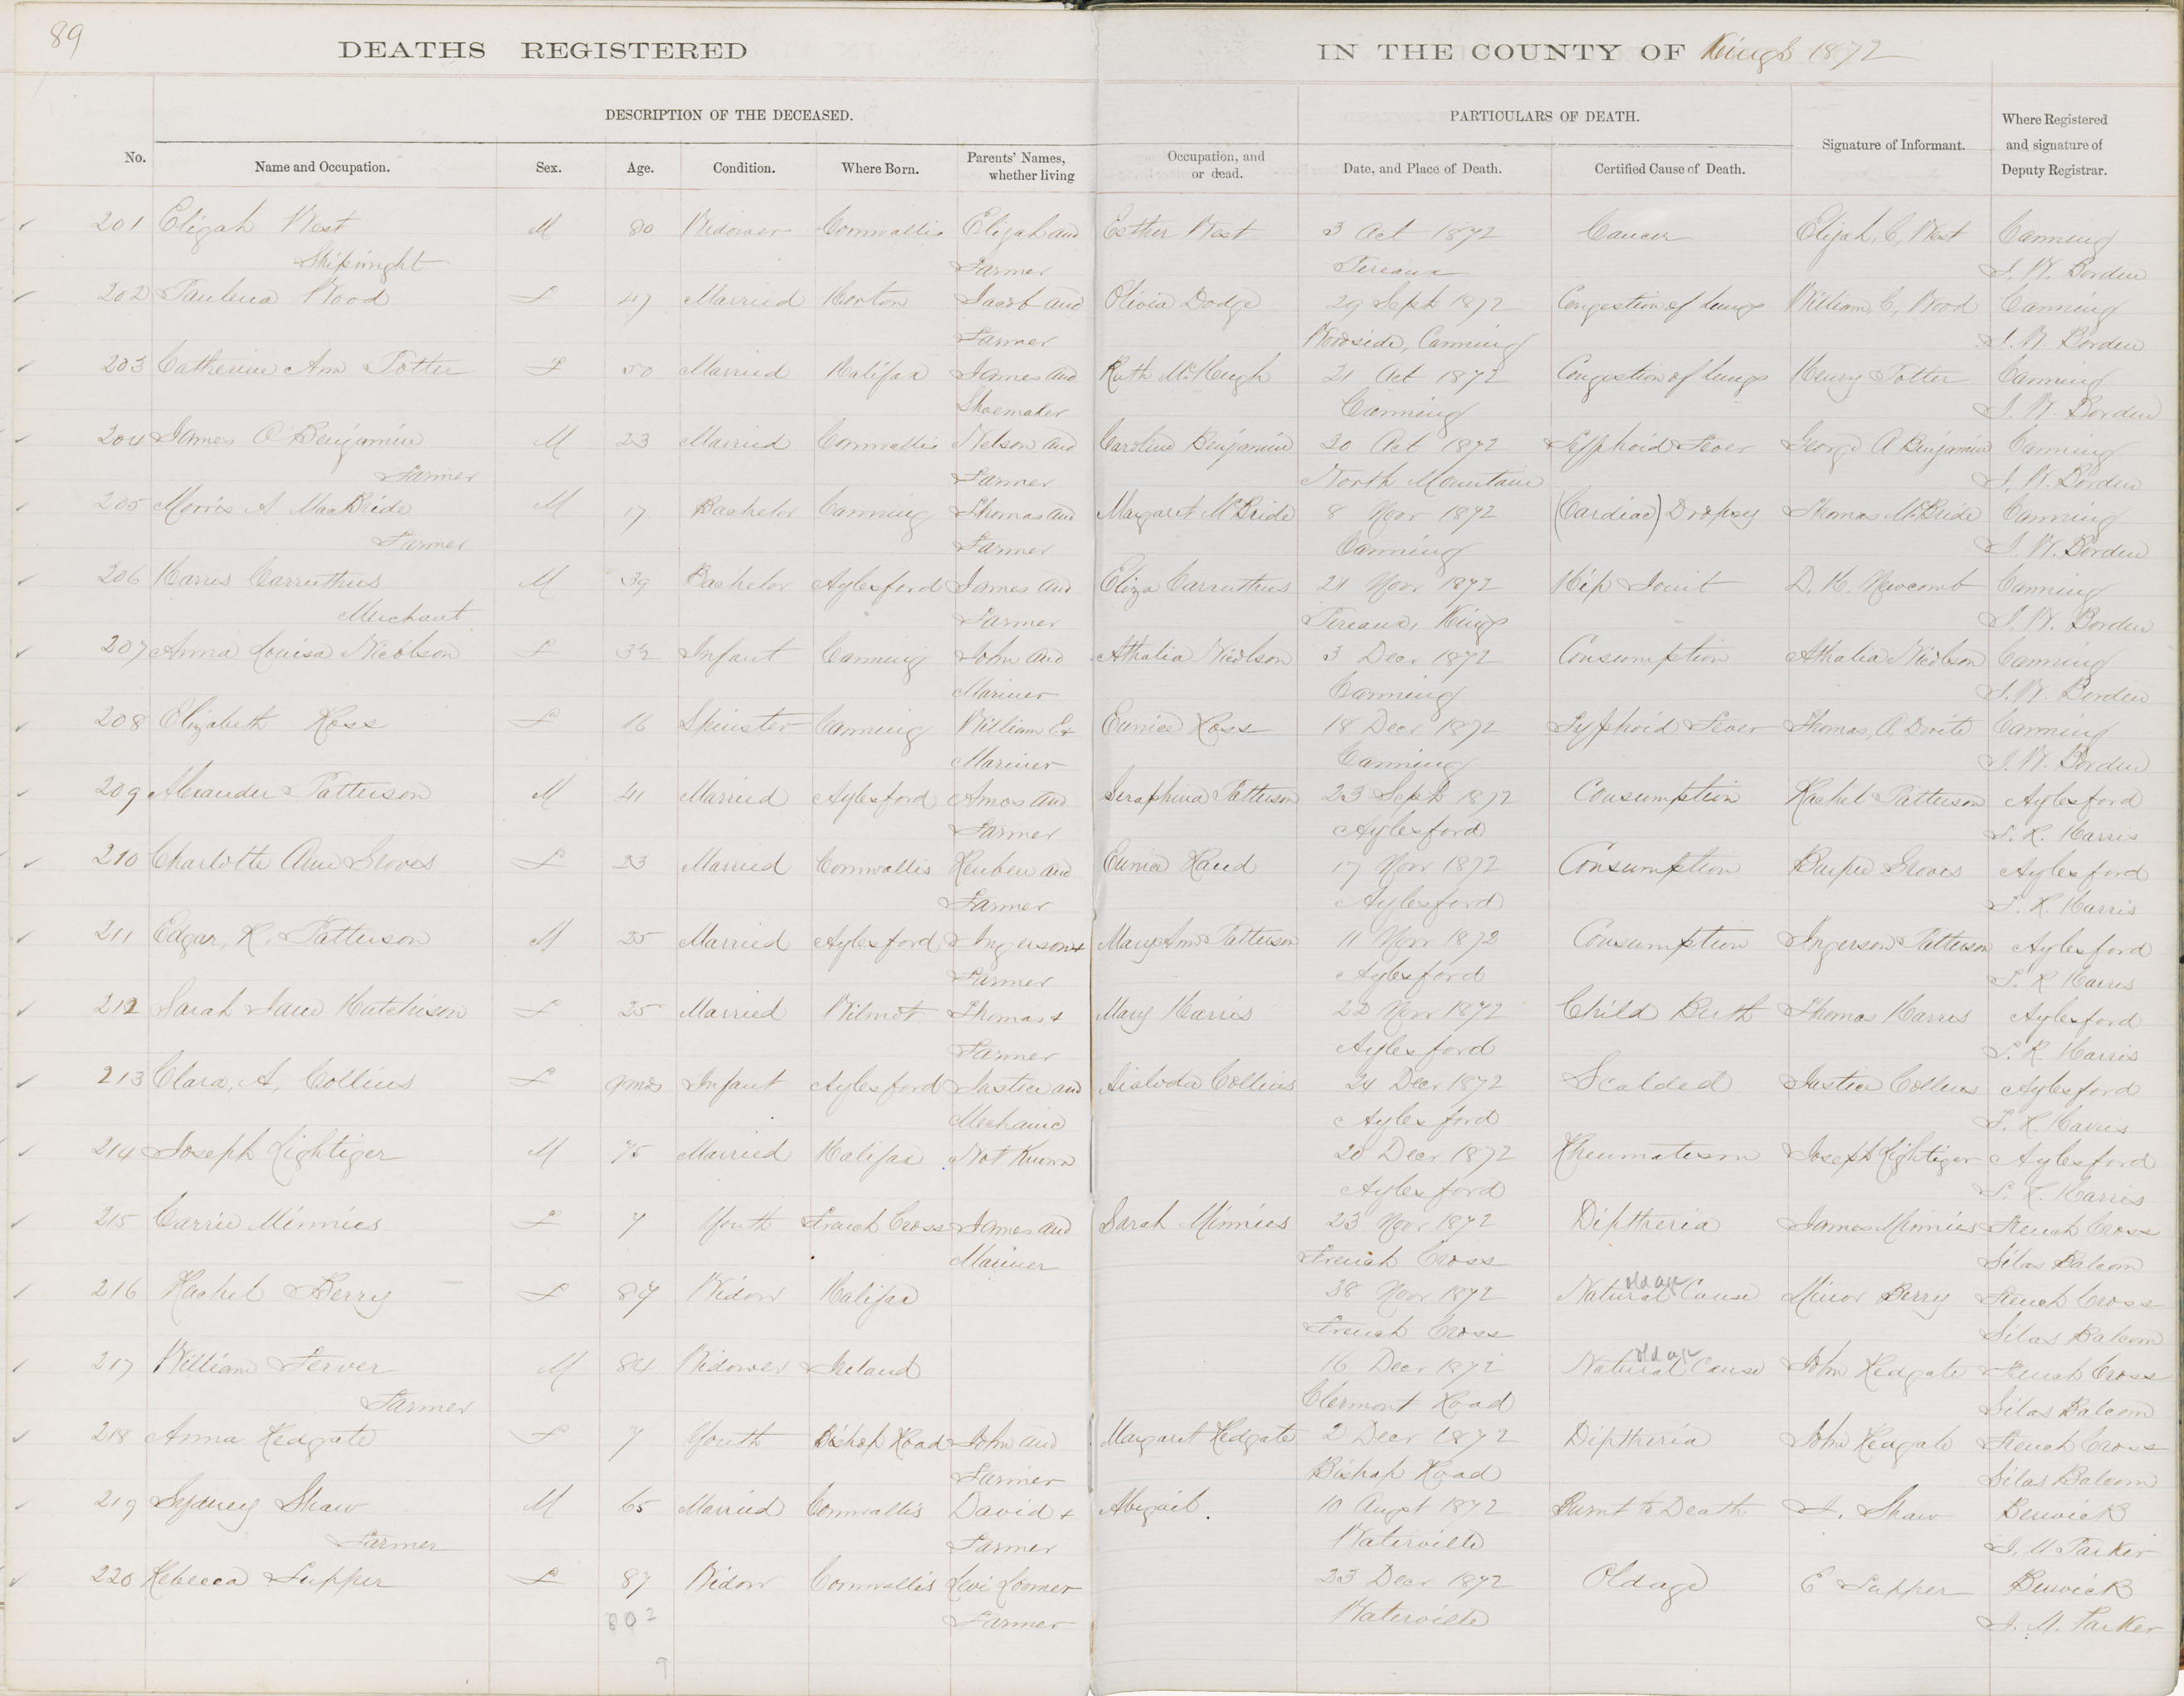 89
DEATHS REGISTERED IN THE COUNTY OF Kings 1872
DESCRIPTION OF THE DECEASED. PARTICULARS OF DEATH.
No. Name and Occupation. Sex. Age. Condition. Where Born. Parents' Names, whether living Occupation, and or dead. Date, and Place of Death. Certified Cause of Death. Signature of Informant. Where Registered and signature of Deputy Registrar.
201 Elijah West M 80 Widower Cornwallis Elijah and Esther West 3 Oct 1872 Cancer Elijah, C, West Canning
Shipwright Farmer Pereaux J. W. Borden
202 Paulena Wood F 47 Married Horton Jacob and Olivia Dodge 29 Sept 1872 Congestion of lungs William, C, Wood Canning
Farmer Woodside, Canning J. W. Borden
203 Catherine Ann Potter F 50 Married Halifax James and Ruth McHeugh 21 Oct 1872 Congestion of lungs Henry Potter Canning
Shoemaker Canning J. W. Borden
204 James O Benjamin M 23 Married Cornwallis Nelson and Caroline Benjamin 30 Oct 1872 Typhoid Fever George A Benjamin Canning
Farmer Farmer North Mountain J. W. Borden
205 Morris A MacBride M 17 Bachelor Canning Thomas and Margaret McBride 8 Novr 1872 (Cardiac) Dropsy Thomas McBride Canning
Farmer Farmer Canning J. W. Borden
206 Harris Carruthers M 39 Bachelor Aylesford James and Eliza Carruthers 21 Novr 1872 Hip Joint D. H. Newcomb Canning
Merchant Farmer Pereaux, Kings J. W. Borden
207 Anna Louisa Nicolson F 3½ Infant Canning John and Athalia Nicolson 3 Decr 1872 Consumption Athalia Nicolson Canning
Mariner Canning J. W. Borden
208 Elizabeth Ross F 16 Spinster Canning William & Eunice Ross 18 Decr 1872 Typhoid Fever Thomas, A, Canning
Mariner Canning J. W. Borden
209 Alexander Patterson M 41 Married Aylesford Amos and Seraphina Patterson 23 Sept 1872 Consumption Rachel Patterson Aylesford
Farmer Aylesford T. R. Harris
210 Charlotte Ann Groves F 23 Married Cornwallis Reuben and Eunice Rand 17 Novr 1872 Consumption Burpee Groves Aylesford
Farmer Aylesford T. R. Harris
211 Edgar, R, Patterson M 25 Married Aylesford Ingerson + Mary Ann Patterson 11 Novr 1872 Consumption Ingerson Patterson Aylesford
Farmer Aylesford T. R Harris
212 Sarah Jane Hutchison F 25 Married Wilmot Thomas + Mary Harris 22 Novr 1872 Child Birth Thomas Harris Aylesford
Farmer Aylesford T. R. Harris
213 Clara, A, Collins F 9mos Infant Aylesford Justice and Collins 24 Decr 1872 Scalded Justice Collins Aylesford
Mechanic Aylesford T. R. Harris
214 Joseph Lightiger M 75 Married Halifax Not Known 20 Decr 1872 Rheumatism Joseph Lightiger Aylesford
Aylesford T. R. Harris
215 Carrie Minnies F 7 Youth French Cross James and Sarah Minnies 23 Novr 1872 Diptheria James Minnies French Cross
Mariner French Cross Silas Balcom
216 Rachel Berry F 87 Widow Halifax 38 Novr 1872 Natural old age Cause Minor Berry French Cross
French Cross Silas Balcom
217 William Ferver M 84 Widower Ireland 16 Decr 1872 Natural old age Cause John Redgate French Cross
Farmer Clermont Road Silas Balcom
218 Anna Redgate F 7 Youth Bishop Road John and Margaret Redgate 2 Decr 1872 Diptheria John Redgate French Cross
Farmer Bishop Road Silas Balcom
219 Sydney Shaw M 65 Married Cornwallis David + Abigail. 10 Augst 1872 Burnt to Death I. Shaw Berwick
Farmer Farmer Waterville J. M Parker
220 Rebecca Tupper F 87 Widow Cornwallis Levi Loomer 23 Decr 1872 Old age E Tupper Berwick
80? Farmer Waterville J. M. Parker
9